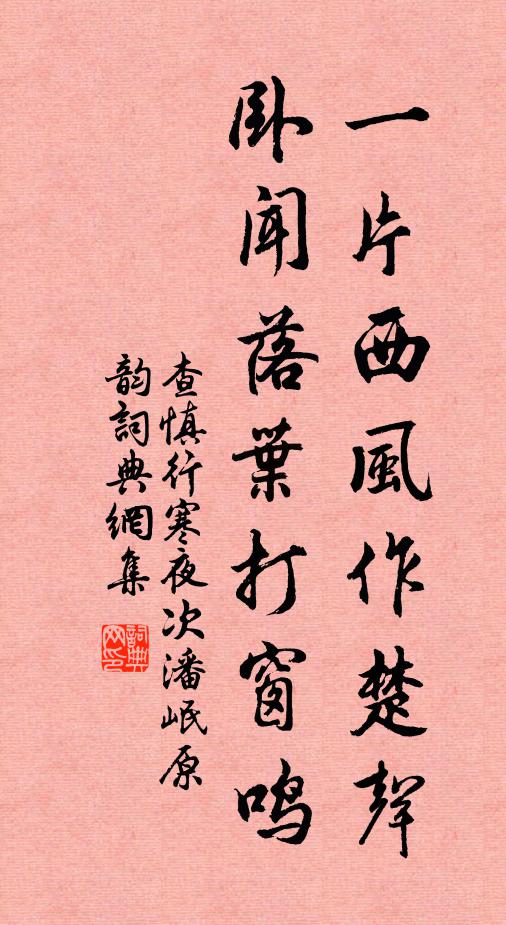 一片西風作楚聲
卧聞落葉打窗鳴
查慎行寒夜次潘岷原
韵詞典網集
詞典网印